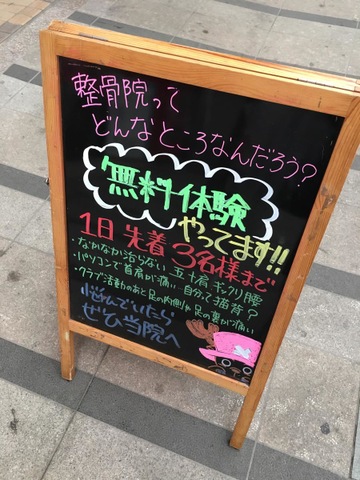 整骨院って
どんなところなんだろう?
無料体験
やってます!!
1日 先着 3名様まで
・なかなか治らない 五十肩 ギックリ腰
・パソコンで首肩が痛い・自分って猫背?
・クラブ活動のあと足の内側や足の裏が痛い
悩んでいたら
ぜひ当院へ